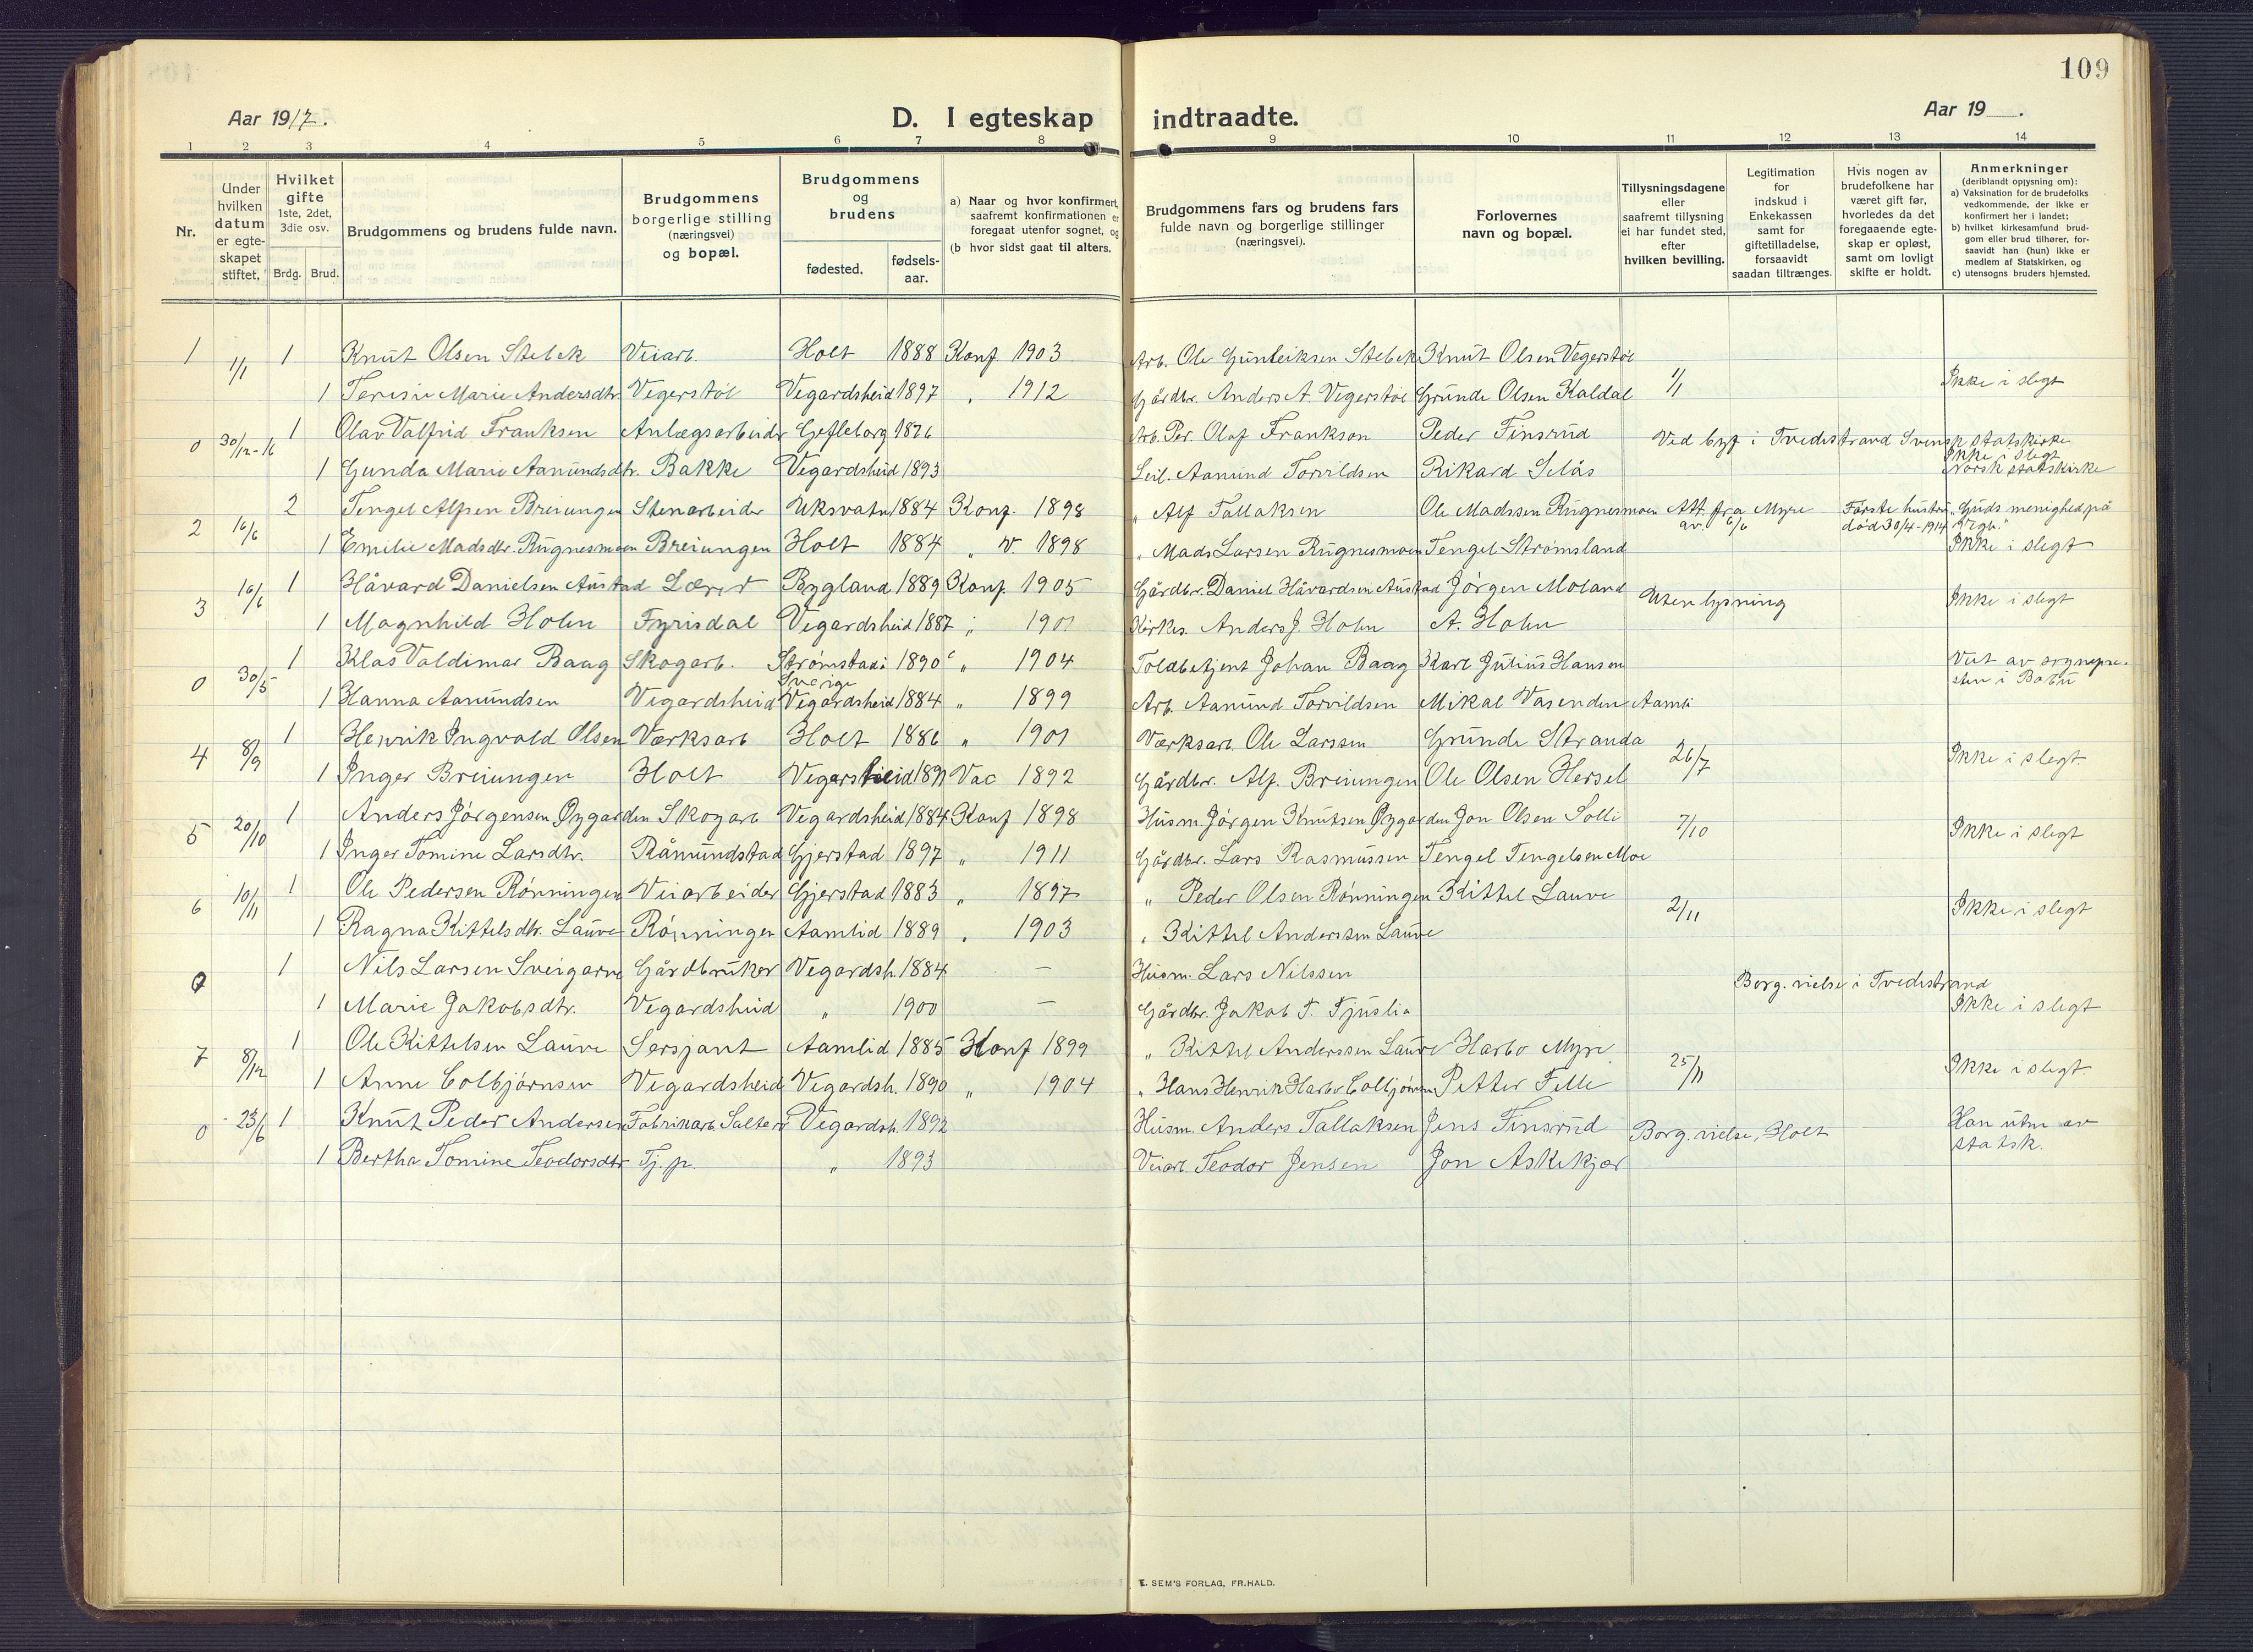 109
Aar 1917.
D. I egteskap indtraadte.
Aar 19 .
1 2 3 4 5 6 7 8 9 10 11 12 13 14
Nr.
Under hvilken datum er egteskapet stiftet.
Hvilket gifte 1ste, 2det, 3die osv.
Brdg. Brud.
Brudgommens og brudens fulde navn.
Brudgommens borgerlige stilling (næringsvei) og bopæl.
Brudgommens og brudens
fødested. fødselsaar.
a) Naar og hvor konfirmert, saafremt konfirmationen er foregaat utenfor sognet, og
(b hvor sidst gaat til alters.
Brudgommens fars og brudens fars fulde navn og borgerlige stillinger (næringsvei).
Forlovernes navn og bopæl.
Tillysningsdagene eller saafremt tillysning ei har fundet sted, efter hvilken bevilling.
Legitimation for indskud i Enkekassen samt for giftetilladelse, forsaavidt saadan tiltrænges.
Hvis nogen av brudefolkene har været gift før, hvorledes da det foregaaende egteskap er opløst, samt om lovligt skifte er holdt.
Anmerkninger (deriblandt opjysning om):
a) Vaksination for de brudefolks vedkommende, der ikke er konfirmert her i landet;
b) hvilket kirkesamfund brudgom eller brud tilhører, forsaavidt han (hun) ikke er medlem af Statskirken, og
c) utensogns bruders hjemsted.
1 1/1 1 Knut Olsen Stebek Veiarb. Holt 1888 Konf 1903 Arb. Ole Gunleiksen Stebek Knut Olsen Vegerstøl
1 Teresie Marie Andersdtr. Vegerstøl Vegardsheid 1897 „ 1912 Gårdbr. Anders A. Vegerstøl Grunde Olsen Kaldal 1/1 Ikke i slegt
0 30/12-16 1 Olav Valfrid Franksen Anlægsarbeider Gefleborg 1876 Arb. Per. Olof Frankson Peder Finsrud Ved byf i Tvedestrand Svensk statskirke
Ikke i slegt
1 Gunda Marie Aamundsdtr. Bakke Vegardsheid 1893 Leil. Aamund Torvildsen Rikard Selås Norsk statskirke
2 16/6 2 Tengel Alfsen Breiungen Stenarbeider Uksvatn 1884 Konf. 1898 „ Alf Tallaksen Ole Madssen Rugnesmoen Att. fra Myre av. 6/6 Første hustru død 30/4-1914 „Guds menighed på Vegh."
1 Emilie Madsdtr. Rugnesmoen Breiungen Holt 1884 „ V. 1898 „ Mads Larsen Rugnesmoen Tengel Strømsland Ikke i slegt
3 16/6 1 Håvard Danielsen Austad Lærer Bygland 1889 Konf. 1905 Gårdbr. Daniel Håvardsen Austad Jørgen Moland Uten lysning Ikke i slegt
1 Magnhild Holm Fyrisdal Vegardsheid 1887 „ 1901 Kirkes. Anders J. Holm A. Holm
0 30/5 1 Klas Valdimar Baag Skogarb. Strømstad i Sverige 1890 „ 1904 Toldbetjent Johan Baag Karl Julius Hansen Viet av sognepresten i Båbu
1 Hanna Aamundsen Vegardsheid Vegardsheid 1884 „ 1899 Arb. Aamund Torvildsen Mikal Vasenden Aamli
4 8/9 1 Henrik Ingvald Olsen Værksarb Holt 1886 „ 1901 Værksarb. Ole Larssen Grunde Stranda 26/7 Ikke i slegt
1 Inger Breiungen Holt Vegarsheid 1891 Vac 1892 Gårdbr. Alf. Breiungen Ole Olsen Hersel
5 20/10 1 Anders Jørgensen Øygarden Skogarb Vegardsheid 1884 Konf 1898 Husm. Jørgen Knutsen Øygarden Jon Olsen Solli 7/10 Ikke i slegt
1 Inger Tomine Larsdtr. Råmundstad Gjerstad 1897 „ 1911 Gårdbr. Lars Rasmussen Tengel Tengelsen Moe
6 10/11 1 Ole Pedersen Rønningen Veiarbeider Gjerstad 1883 „ 1897 „ Peder Olsen Rønningen Kittel Lauve 2/11 Ikke i slegt
1 Ragna Kittelsdtr. Lauve Rønningen Aamlid 1889 „ 1903 „ Kittel Anderssen Lauve
0 1 Nils Larsen Sveigarne Gårdbruker Vegardsh. 1884 — Husm. Lars Nilssen Borg. vielse i Tvedestrand
1 Marie Jakobsdtr. Vegardsheid „ 1900 — Gårdbr. Jakob T. Tjuslia Ikke i slegt
7 8/12 1 Ole Kittelsen Lauve Sersjant Aamlid 1885 Konf 1899 „ Kittel Anderssen Lauve Harbo Myre 25/11 Ikke i slegt
1 Anne Colbjørnsen Vegardsheid Vegardsh. 1890 „ 1904 „ Hans Henrik Harbo Colbjørnsen Petter Felle
0 23/6 1 Knut Peder Andersen Fabrikarb. Salterø Vegardsh. 1892 Husm. Anders Tallaksen Jens Finsrud Borg. vielse, Holt Han utm av statsk.
1 Bertha Tomine Teodorsdtr Tj. p. „ 1893 Veiarb Teodor Jensen Jon Askekjær
E. SEM'S FORLAG, FR.HALD.